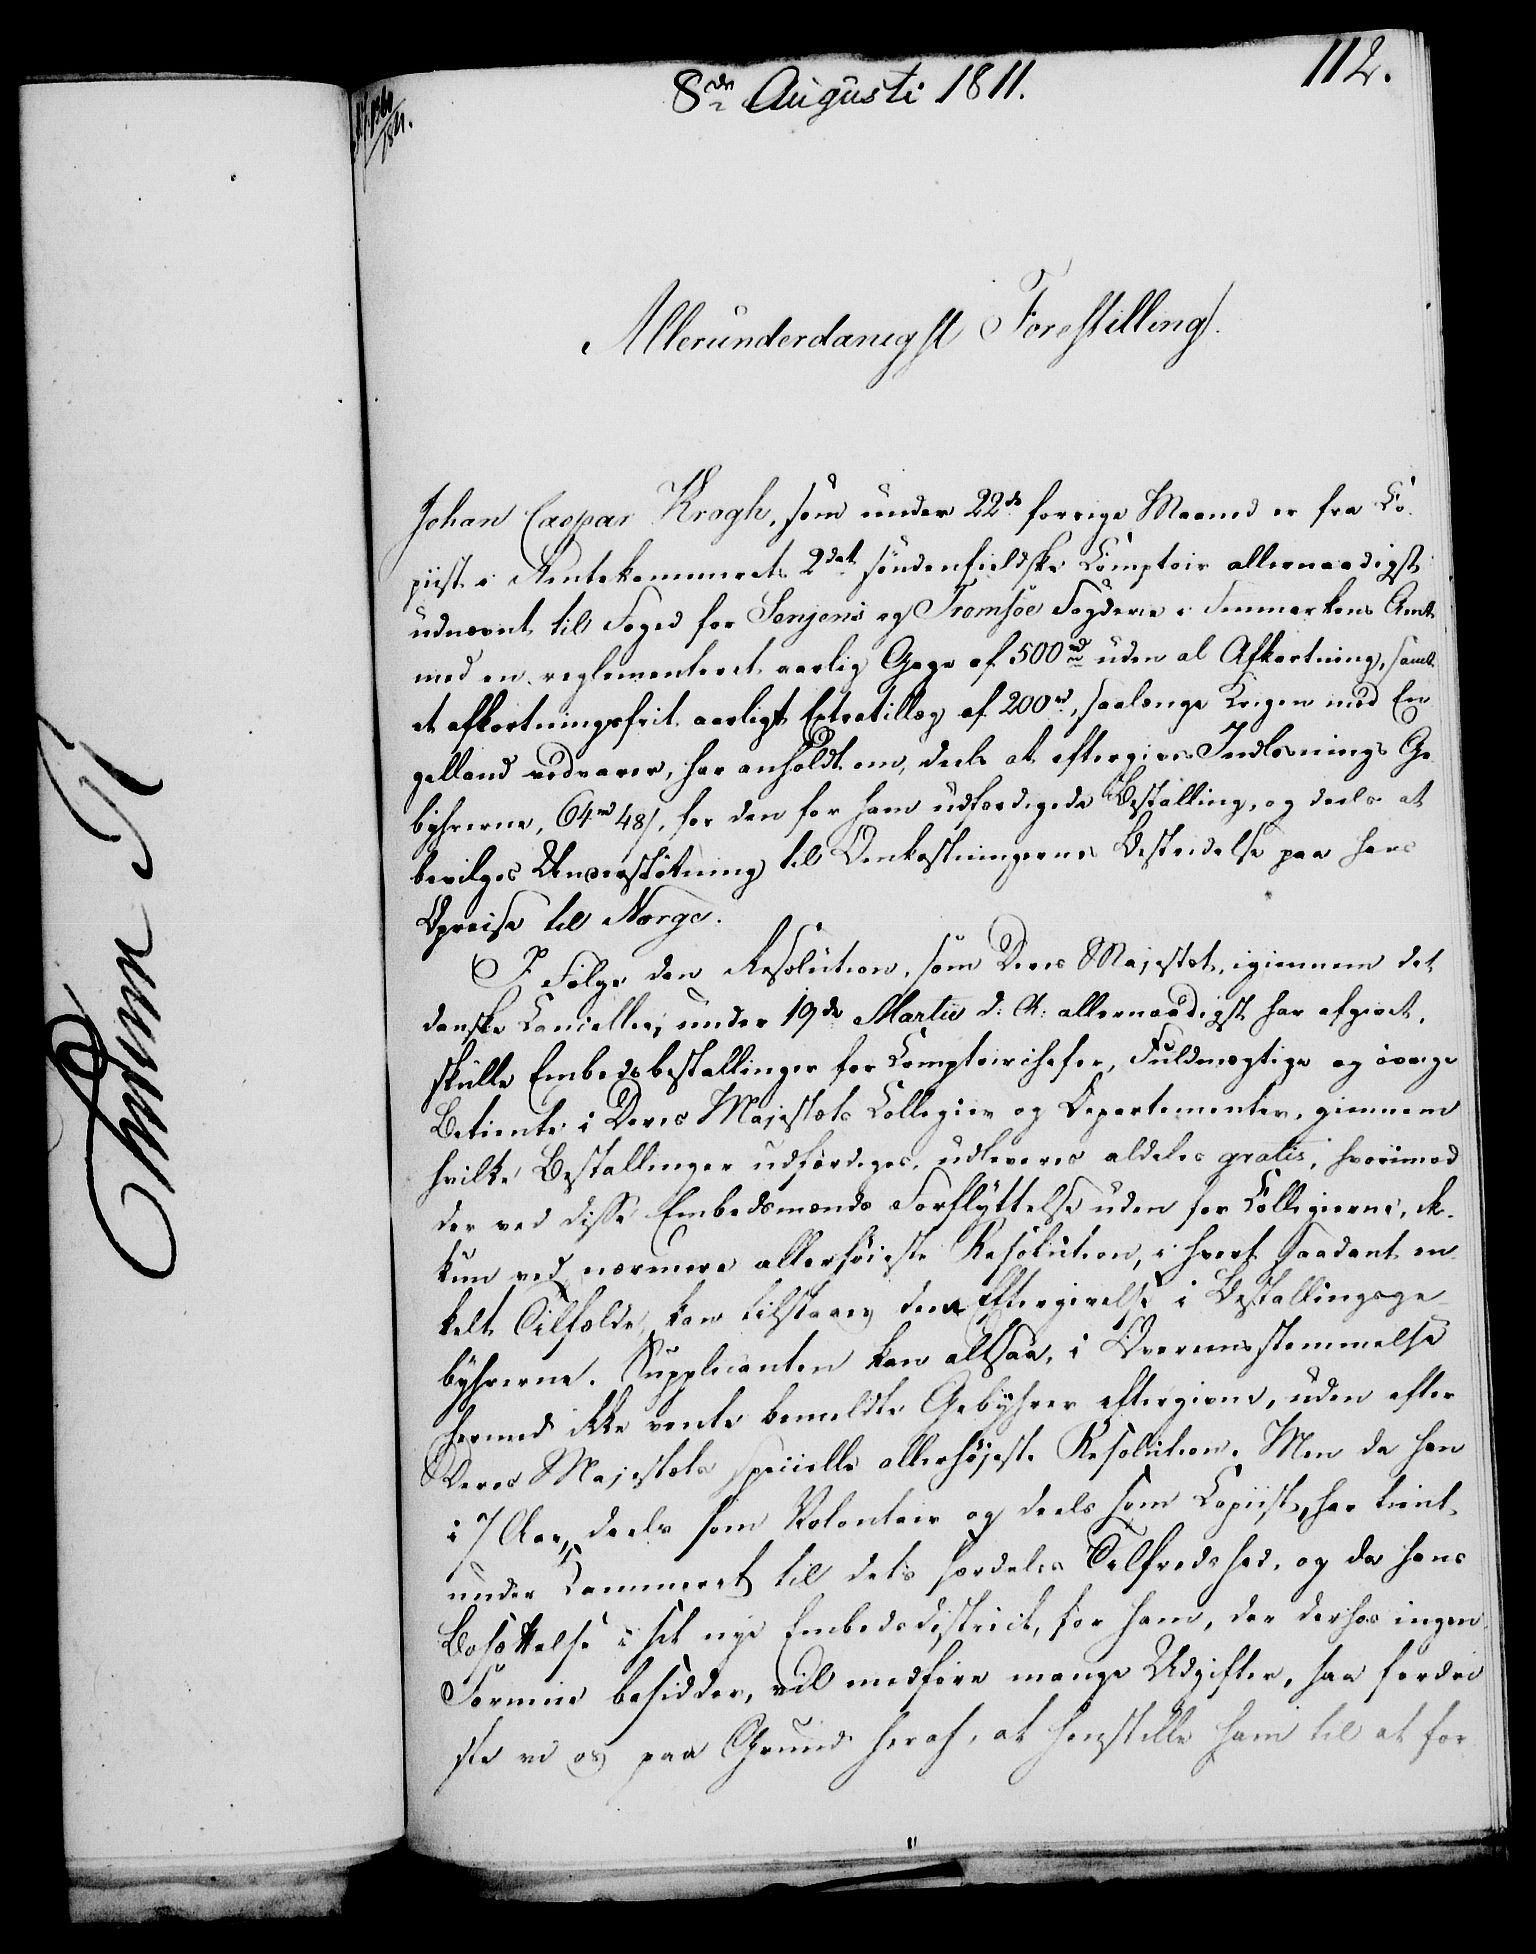 8de Augusti 1811.
112.
1811.
Allerunderdanigst Forestilling.
Johan Caspar Krogh, som under 22de forrige Maaned er fra Co-
piist i Rentekammerets 2det søndenfieldske Comptoir allernaadigst
udnævnt til Foged for Senjens og Tromsøe Fogderie i Finmarkens Amt
med en reglementeret aarlig Gage af 500 rd uden al Afkortning, samt
et afkortningsfrit aarligt Extratillæg af 200 rd, saalænge Krigen med En-
gelland vedvarer, har anholdt om, deels at eftergives Indløsnings Ge-
byhrerne, 64 rd 48 s, for den for ham udfærdigede Bestalling, og deels at
bevilges Understøtning til Omkostningernes Bestridelse paa hans
Opreise til Norge.
I Følge den Resolution, som Deres Majestæt, igiennem det
danske Cancellie, under 19de Martii d: A: allernaadigst har afgivet,
skulle Embedsbestallinger for Comptoirchefer, Fuldmægtige og øvrige
Betiente i Deres Majestæts Collegier og Departementer, giennem
hvilke Bestallinger udfærdiges, udleveres aldeles gratis, hvorimod
der ved disse Embedsmænds Forflyttelse uden for Collegierne,
kun ved nærmere allerhøieste Resolution, i hvert saadant en-
kelt Tilfælde, kan tilstaaes dem Eftergivelse i Bestallingsge-
byhrerne. Supplicanten kan altsaa, i Overeensstemmelse
hermed ikke vente bemeldte Gebyhrer eftergivne, uden efter
Deres Majestæts specielle allerhøjeste Resolution. Men da han
i 7 Aar, deels som Volontair og deels som Copiist, har tient
under Kammeret til dets særdeles Tilfredshed, og da hans
Bosættelse i sit nye Embedsdistrict, for ham, der derhos ingen
Formue besidder, vil medføre mange Udgifter, saa fordri-
ste vi os paa Grund heraf, at henstille ham til at for-